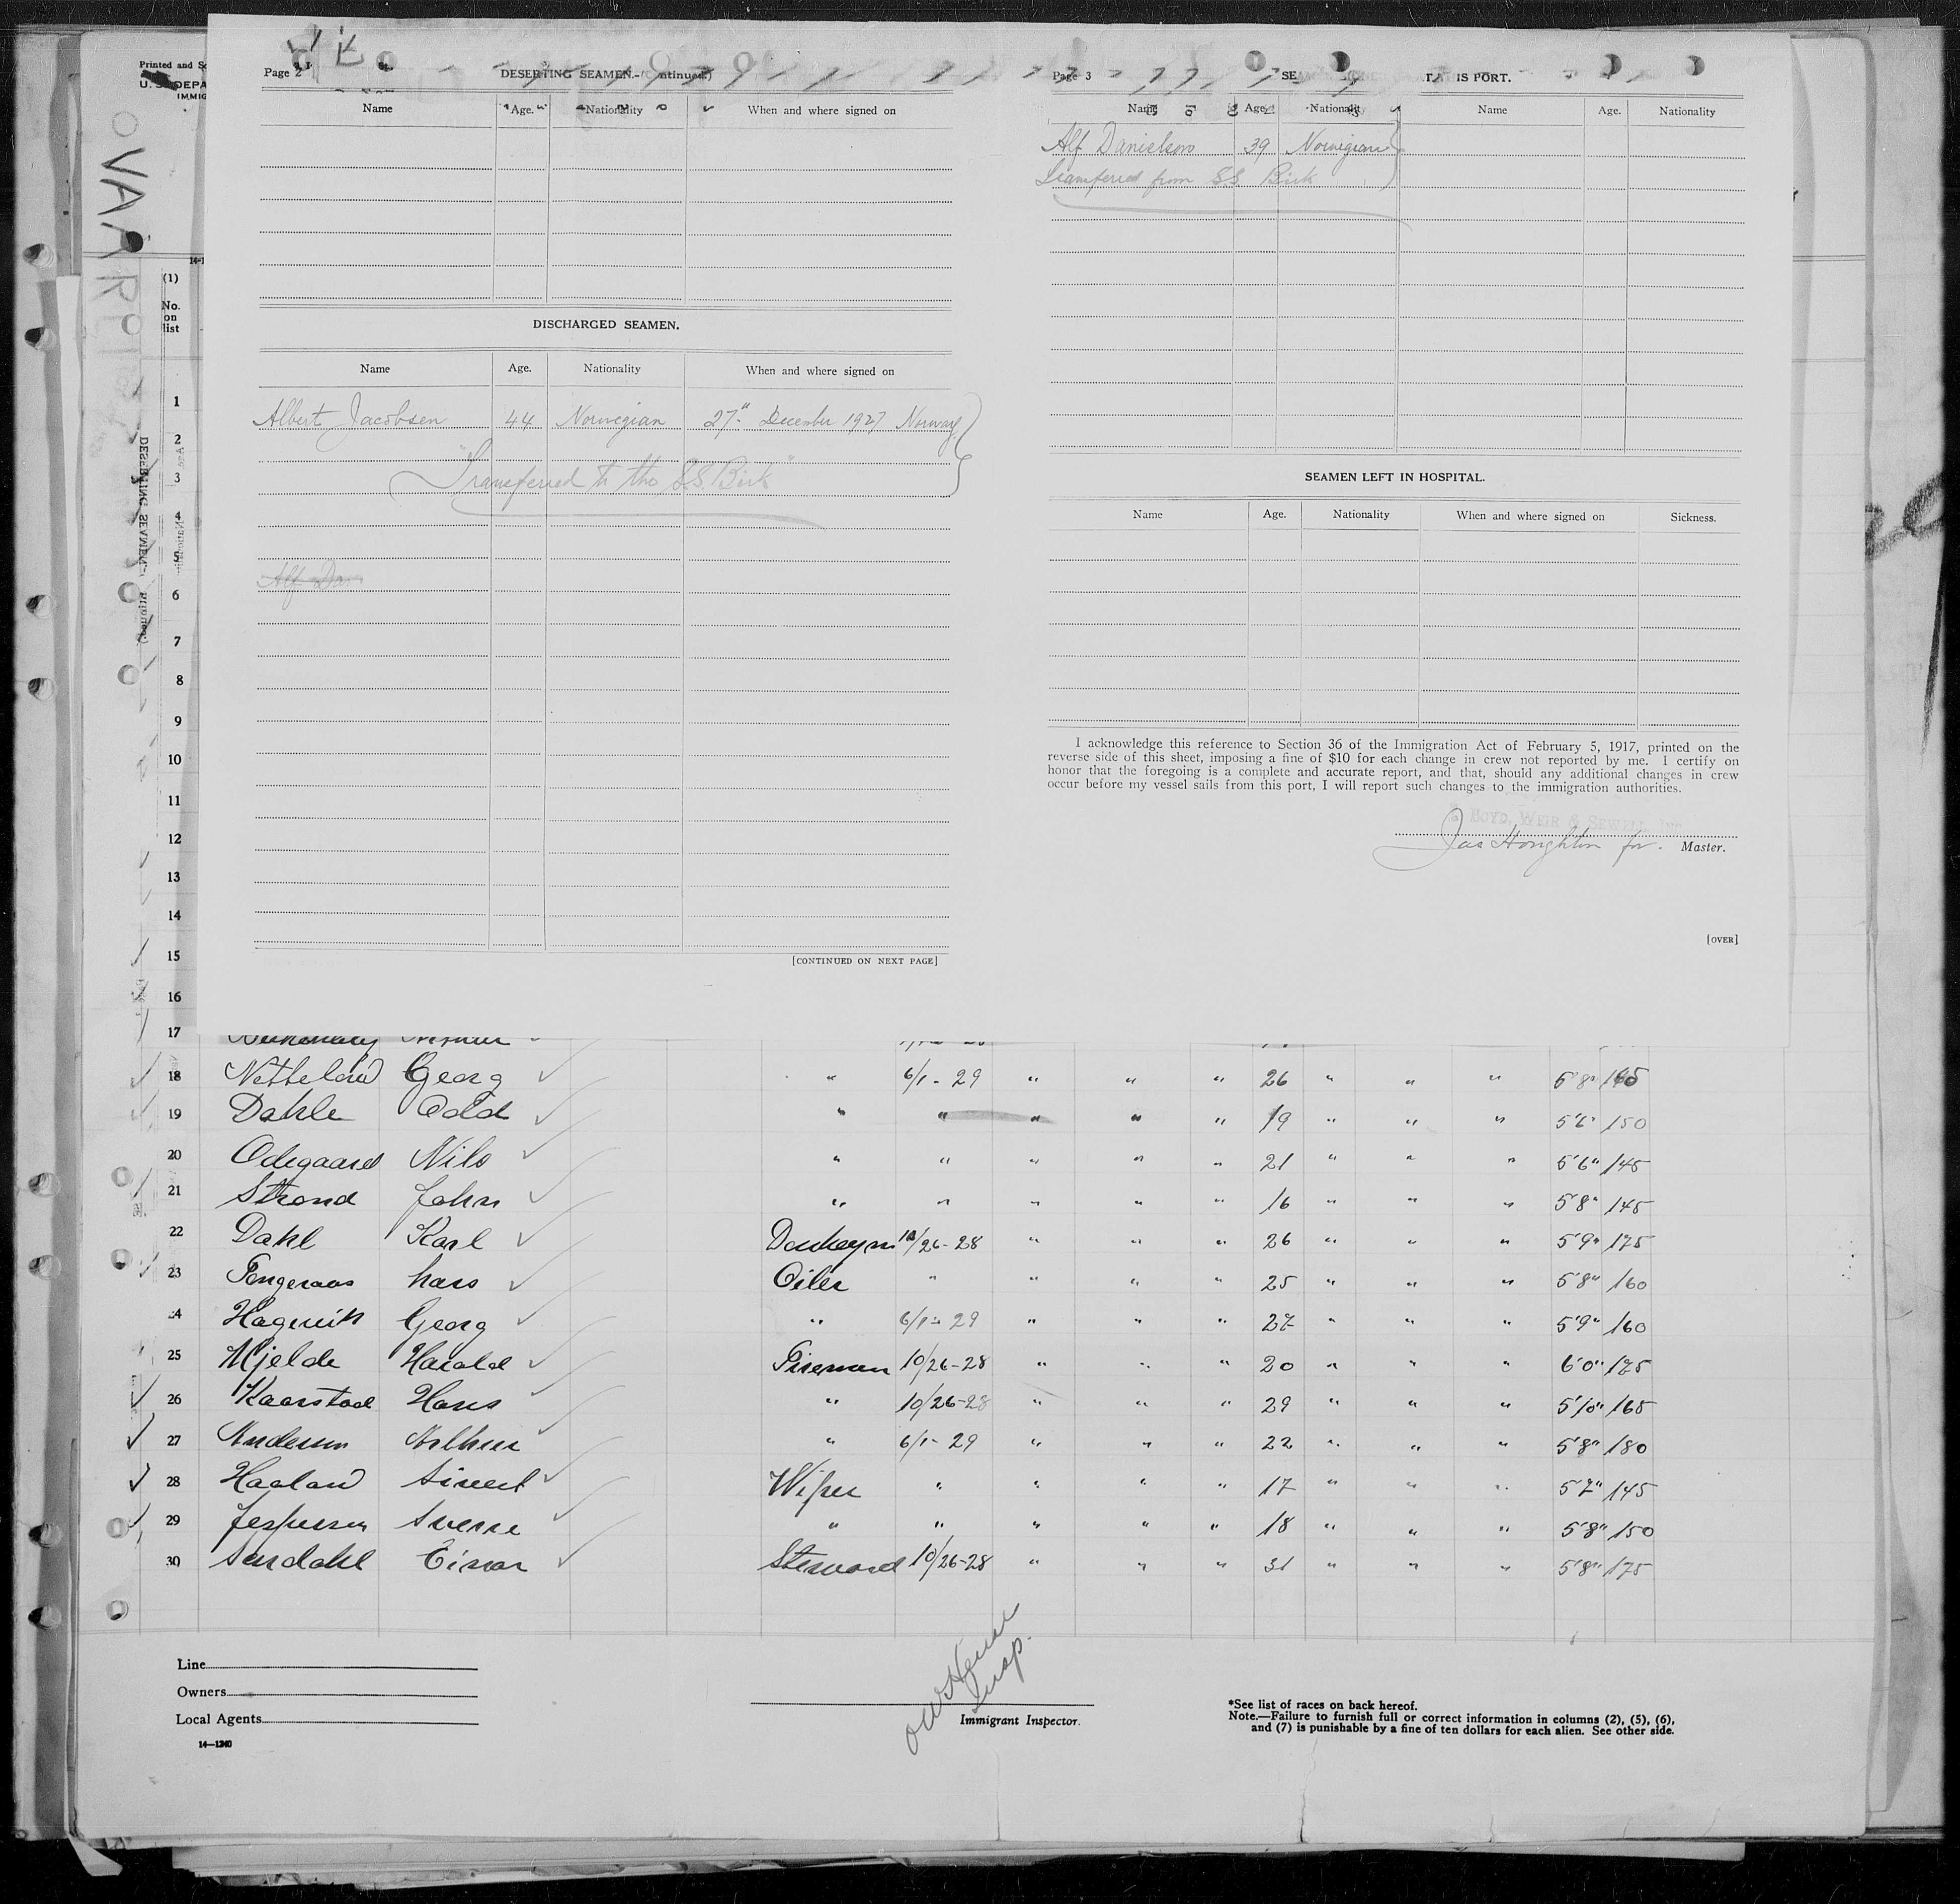 Printed and
U. S. DEPA
IMMIG
OVAA
(1)
No.
on
list
Page 2
DESERTING SEAMEN.—(Continued)
Name Age. Nationality When and where signed on
DISCHARGED SEAMEN.
Name Age. Nationality When and where signed on
Albert Jacobsen 44 Norwegian 27" December 1927 Norway
"Transferred to the S.S. Birk"
Alf Dan
[CONTINUED ON NEXT PAGE]
Page 3 SEAMEN SIGNED AT THIS PORT.
Name Age. Nationality Name Age. Nationality
Alf Danielsen 39 Norwegian
Transferred from SS Birk
SEAMEN LEFT IN HOSPITAL.
Name Age. Nationality When and where signed on Sickness.
I acknowledge this reference to Section 36 of the Immigration Act of February 5, 1917, printed on the
reverse side of this sheet, imposing a fine of $10 for each change in crew not reported by me. I certify on
honor that the foregoing is a complete and accurate report, and that, should any additional changes in crew
occur before my vessel sails from this port, I will report such changes to the immigration authorities.
BOYD, WEIR & SEWELL, INC.
Jas Houghton for. Master.
[OVER]
1
2
3
4
5
6
7
8
9
10
11
12
13
14
15
16
17
18 Netteland Georg " 6/1- 29 " " " 26 " " " 5'8"
19 Dahle Odd " " " " " 19 " " " 150
20 Odegaard Nils " " " " " 21 " " " 5'6" 145
21 Strond John " " " " " 16 " " " 5'8" 145
22 Dahl Karl Donkeym 10/26-28 " " " 26 " " " 5'9" 175
23 Tengeraas Lars Oiler " " " " 25 " " " 5'8" 160
24 Hagevik Georg " 6/1- 29 " " " 27 " " " 5'9" 160
25 Mjelde Harald Fireman 10/26-28 " " " 20 " " " 6'0" 175
26 Kaarstad Hans " 10/26-28 " " " 29 " " " 5'10" 165
27 Andersen Arthur " 6/1- 29 " " " 22 " " " 5'8" 180
28 Haaland Sivert Wiper " " " " 17 " " " 5'7" 145
29 Jespersen Sverre " " " " " 18 " " " 5'8" 150
30 Sardahl Einar Steward 10/26-28 " " " 31 " " " 5'8" 175
Line
Owners
Local Agents
14—1240
Insp.
Immigrant Inspector.
*See list of races on back hereof.
Note.—Failure to furnish full or correct information in columns (2), (5), (6),
and (7) is punishable by a fine of ten dollars for each alien. See other side.